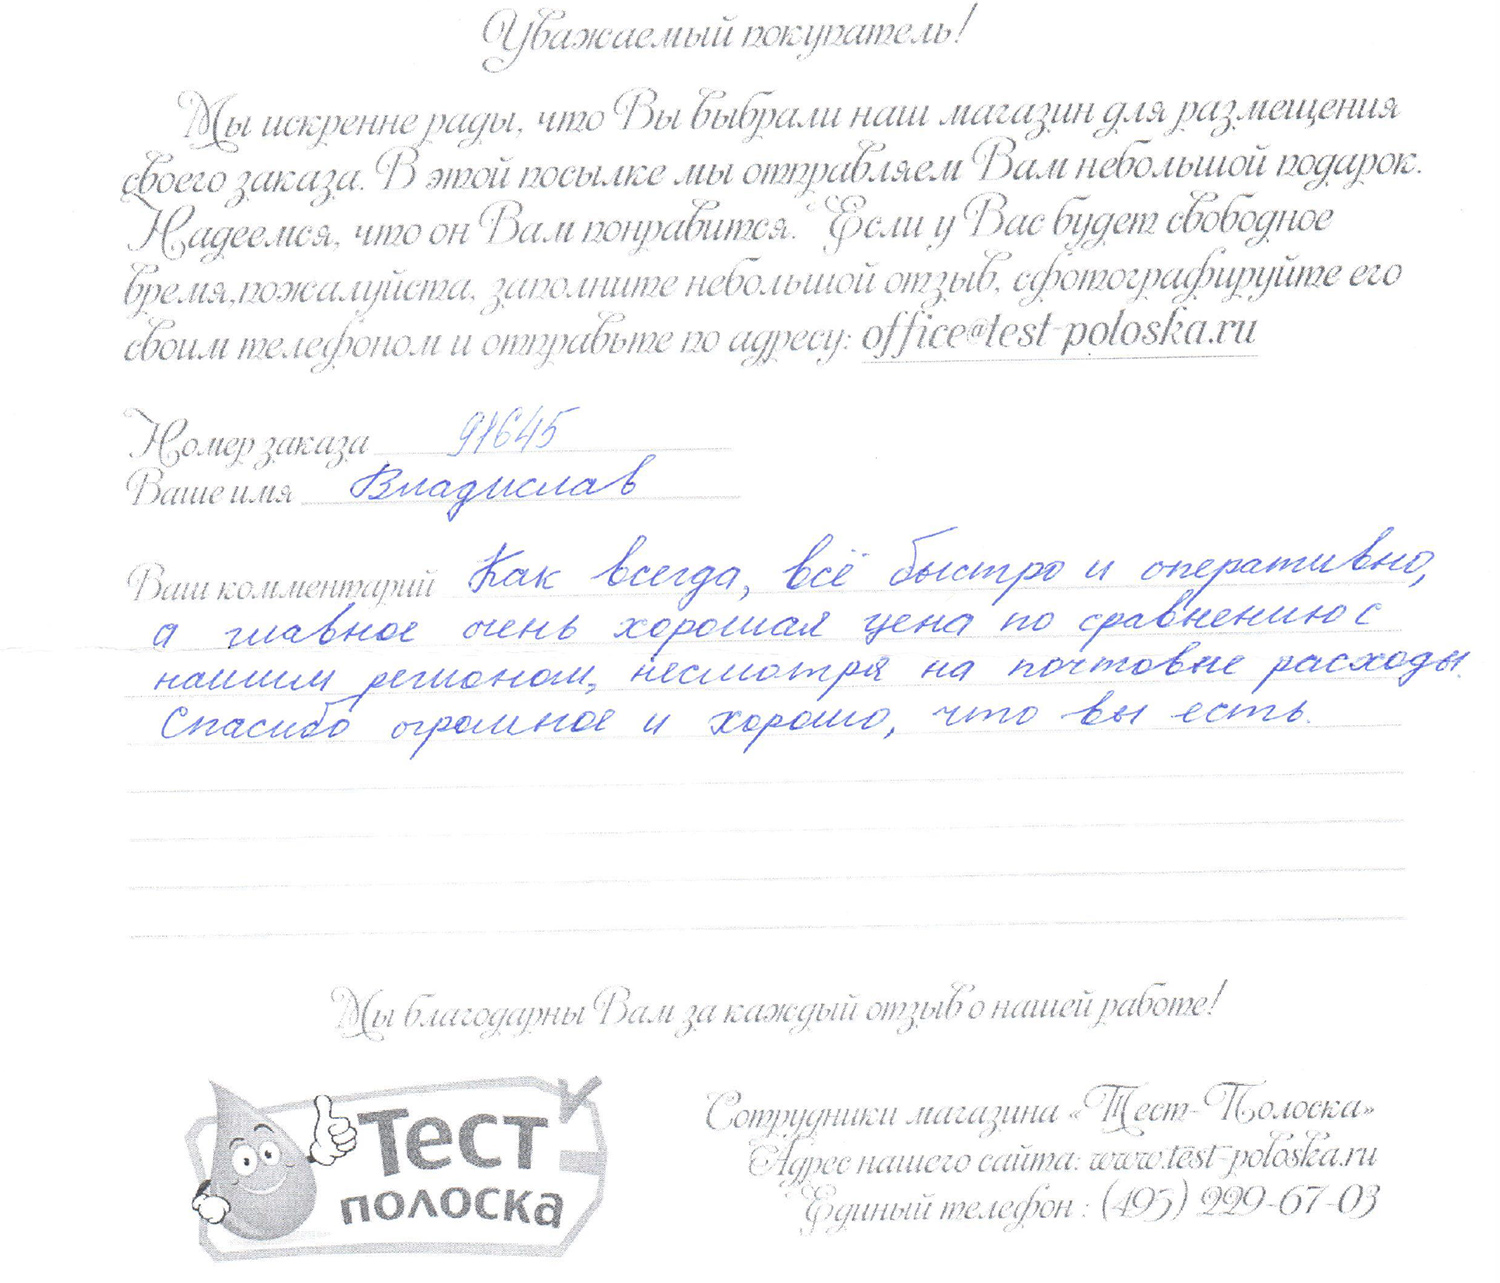 Уважаемый покупатель!
Мы искренне рады, что Вы выбрали наш магазин для размещения
своего заказа. В этой посылке мы отправляем Вам небольшой подарок.
Надеемся, что он Вам понравится. Если у Вас будет свободное
время,пожалуйста, заполните небольшой отзыв, сфотографируйте его
своим телефоном и отправьте по адресу: office@test-poloska.ru
Номер заказа 91645
Ваше имя Владислав
Ваш комментарий Как всегда, всё быстро и оперативно,
а главное очень хорошая цена по сравнению с
нашим регионом, несмотря на почтовые расходы.
Спасибо огромное и хорошо, что вы есть.
Мы благодарны Вам за каждый отзыв о нашей работе!
Тест
полоска
Сотрудники магазина «Тест-Полоска»
Адрес нашего сайта: www.test-poloska.ru
Единый телефон : (495) 229-67-03